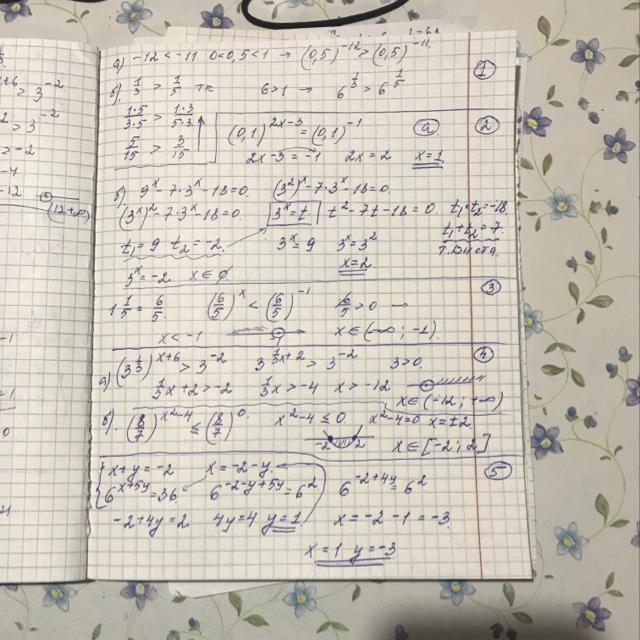 а) -12 < -11 0<0,5<1 → (0,5)^-12 > (0,5)^-11
①
б) 1/3 > 1/5 тк 6>1 → 6^1/3 > 6^1/5
1·5/3·5 > 1·3/5·3
5/15 > 3/15
(0,1)^2x-3 = (0,1)^-1 ⓐ ②
2x-3=-1 2x=2 x=1
б) 9^x-7·3^x-18=0. (3^2)^x-7·3^x-18=0.
(3^x)^2-7·3^x-18=0. 3^x=t. t^2-7t-18=0. t1·t2=-18
t1+t2=7
t1=9 t2=-2. 3^x=9 3^x=3^2
т.Виета
x=2
3^x=-2 x∈∅
③
1 1/5 = 6/5. (6/5)^x < (6/5)^-1 6/5>0 →
x<-1 -1 x∈(-∞; -1).
④
а) (3^1/3)^x+6 > 3^-2 3^1/3x+2 > 3^-2 3>0.
1/3x+2>-2 1/3x>-4 x>-12
x∈(-12; +∞)
б) (8/7)^x^2-4 ≤ (8/7)^0 x^2-4≤0. x^2-4=0 x=±2
-2 2 x∈[-2; 2]
⑤
{x+y=-2 x=-2-y.
6^x+5y=36 6^-2-y+5y=6^2 6^-2+4y=6^2
-2+4y=2 4y=4 y=1 x=-2-1=-3.
x=1 y=-3